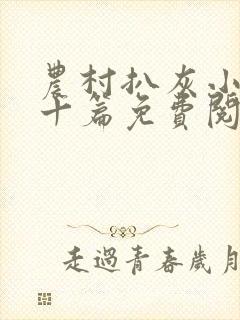 農村扒灰小
十篇免費閱
走過青春歲月